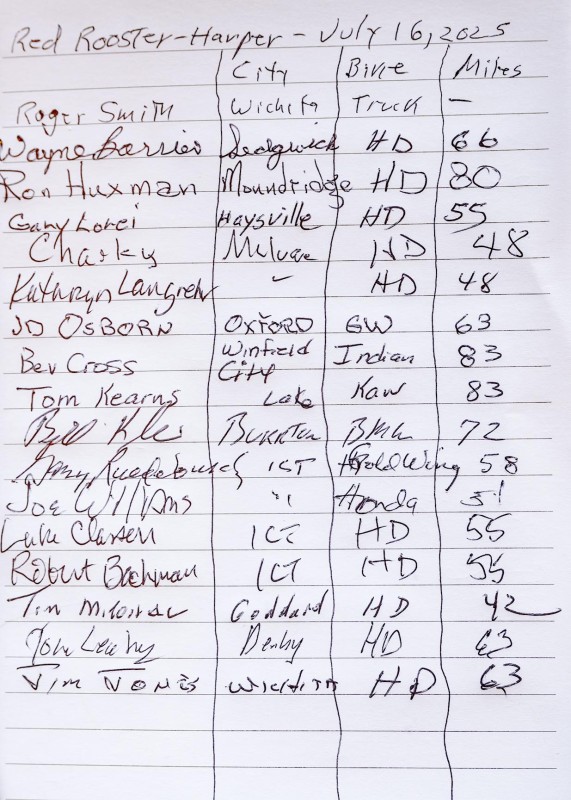 Red Rooster-Harper - July 16, 2025
City Bike Miles
Roger Smith Wichita Truck —
Wayne Barrios Sedgwick HD 66
Ron Huxman Moundridge HD 80
Gary Lorei Haysville HD 55
Charky Mulvane HD 48
Kathryn Langrehr " HD 48
JD OSBORN OXFORD GW 63
Bev Cross Winfield Indian 83
Tom Kearns City Lake Kaw 83
Bill Burrton BMW 72
ICT Gold Wing 58
Joe Williams " Honda 51
Luke Classen ICT HD 55
Robert Bachman ICT HD 55
Tim Goddard HD 42
Tom Leahy Derby HD 63
Jim Jones Wichita HD 63